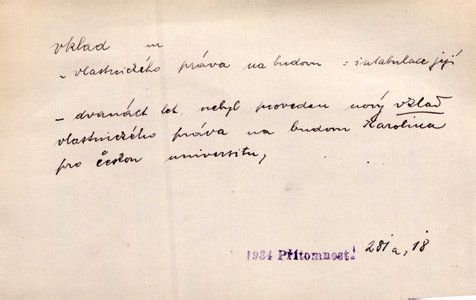 vklad m
- vlastnického práva na budom : intabulace její
- dvanáct let nebyl proveden nový vklad
vlastnického práva na budom Karolina
pro českou universitu,
1934 Přítomnost! 281a, 18